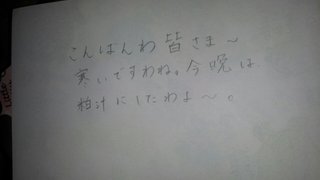 こんばんわ皆さま~
寒いですわね。今晩は
粕汁にしたわよ~。